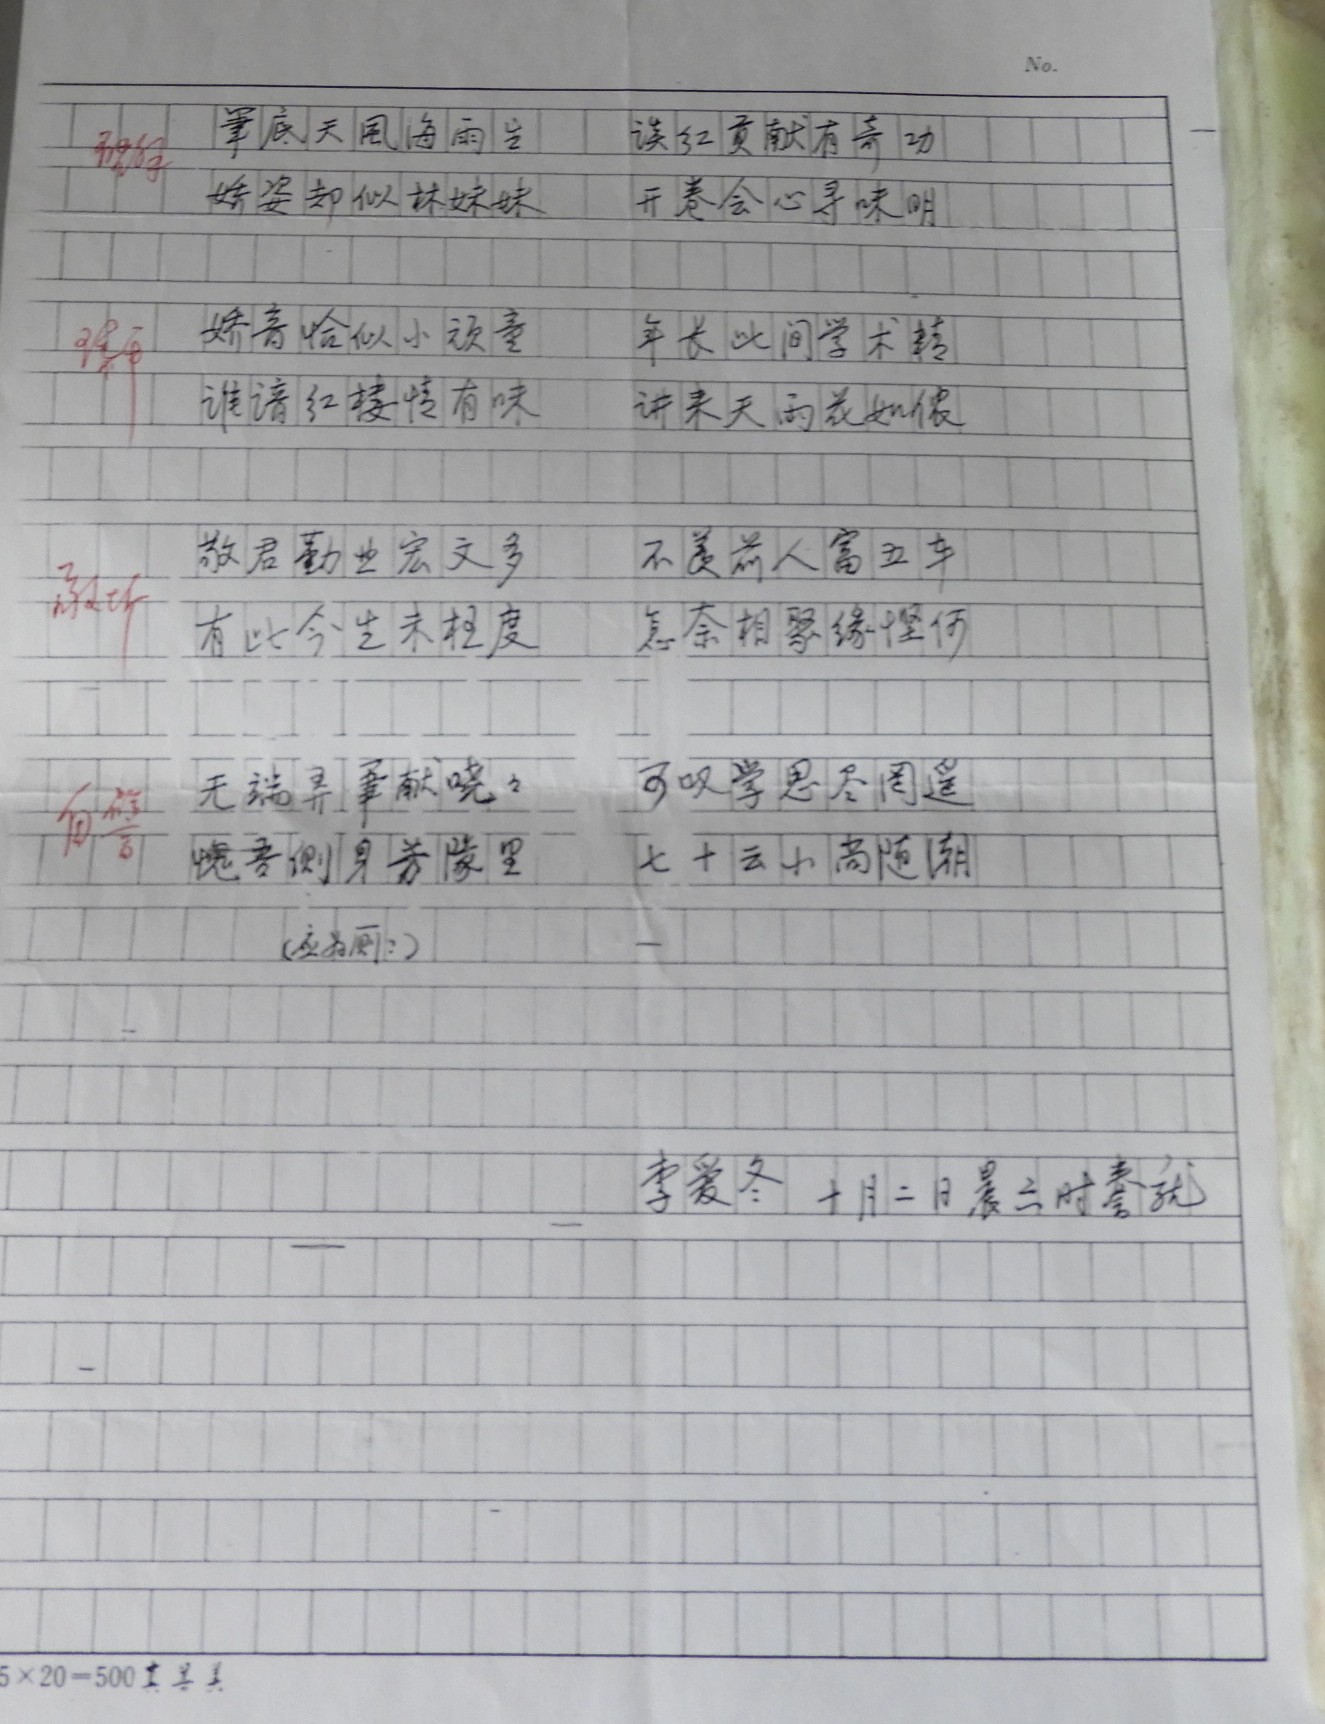 No.
筆底天风海雨生 谈红贡献有奇功
娇姿却似林妹妹 开卷会心寻味明
娇音恰似小顽童 年长此间学术精
谁谙红楼情有味 讲来天雨花如侬
敬君勤业宏文多 不羡前人富五车
有此今生未枉度 怎奈相聚缘悭何
无端弄筆献哓々 可叹学思尽罔遥
愧吾侧身芳隊里 七十云小尚随潮
李爱冬 十月二日晨三时誊就
5×20=500